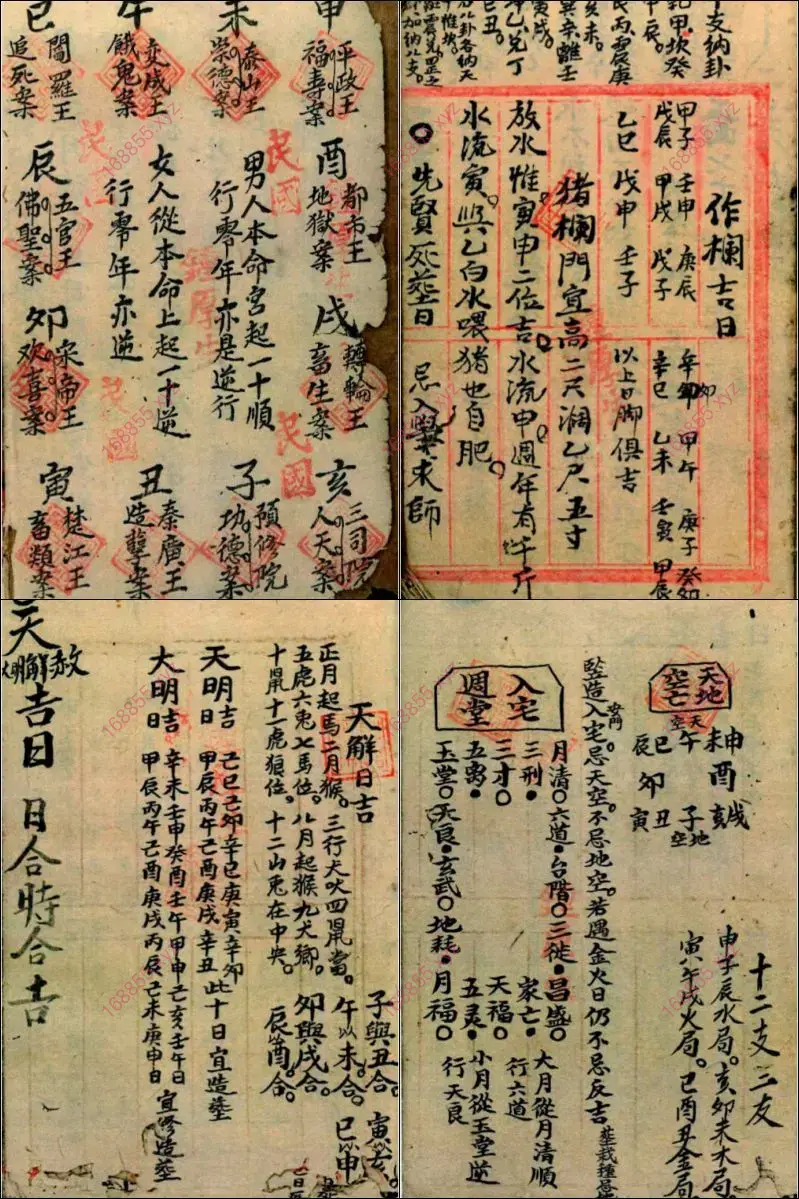 申
平政王
福寿案
未
泰山王
崇德案
午
变成王
餓鬼案
巳
閻羅王
追死案
酉
都市王
地獄案
男人本命宮起一十順
行零年亦是逆行
女人從本命上起一十逆
行零年亦逆
辰
五官王
佛聖案
戌
轉輪王
畜生案
卯
宋帝王
欢喜案
亥
人天案
子
預修院
功德案
丑
秦廣王
造孽案
寅
楚江王
畜類案
民國
民國
干支納卦
作欄吉日
甲子 壬申 庚辰 辛卯 甲午 庚子 癸卯
戊辰 甲戌 戊子 辛巳 乙未 壬寅 甲辰
乙巳 戊申 壬子 以上日脚俱吉
猪欄門宜高二尺濶乙尺五寸
放水惟寅申二位吉。水流申。週年有千斤
水流寅。與乙白水喂猪也自肥。
先賢死塟日 忌入學求師
天解日吉
正月起馬二月猴。三行犬吠四鼠當。
五虎六兎七馬位。八月起猴九犬鄉。
十鼠十一虎狼位。十二山兎在中央。
子與丑合。寅
午以未合。巳申
卯與戌合。
辰酉合。
天明吉日
己巳己卯辛巳庚寅辛卯
甲辰丙午己酉庚戌辛丑此十日宜造塟
大明吉日
辛未壬申癸酉壬午甲申己亥壬午日
甲辰丙午己酉庚戌丙辰己未庚申日 宜修造塟
赦
解
明
吉日 日合時合吉
天地空亡
申
未
天空
午
巳
辰
酉
卯
戌
亥
地空
子
丑
寅
十二支三友
申子辰水局。亥卯未木局
寅午戌火局。巳酉丑金局
竪造入宅。忌天空。不忌地空。若遇金火日仍不忌反吉
入宅週堂
月清 六道 台階 三徙 昌盛
三刑 家亡
三才 天福
五离 五灵
玉堂 天良 玄武 地耗 月福
大月從月清順
行六道
小月從玉堂逆
行天良
168855.xyz
168855.xyz
168855.xyz
168855.xyz